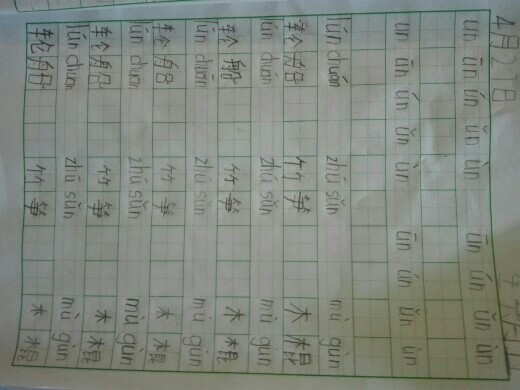 4月27日
un ūn ún ǔn ùn ūn ún ǔn ùn
un ūn ún ǔn ùn ūn ún ǔn ùn
lún chuán zhú sǔn mù gùn
轮船 竹笋 木棍
lún chuán zhú sǔn mù gùn
轮船 竹笋 木棍
lún chuán zhú sǔn mù gùn
轮船 竹笋 木棍
lún chuán zhú sǔn mù gùn
轮船 竹笋 木棍
lún chuán zhú sǔn mù gùn
轮船 竹笋 木棍